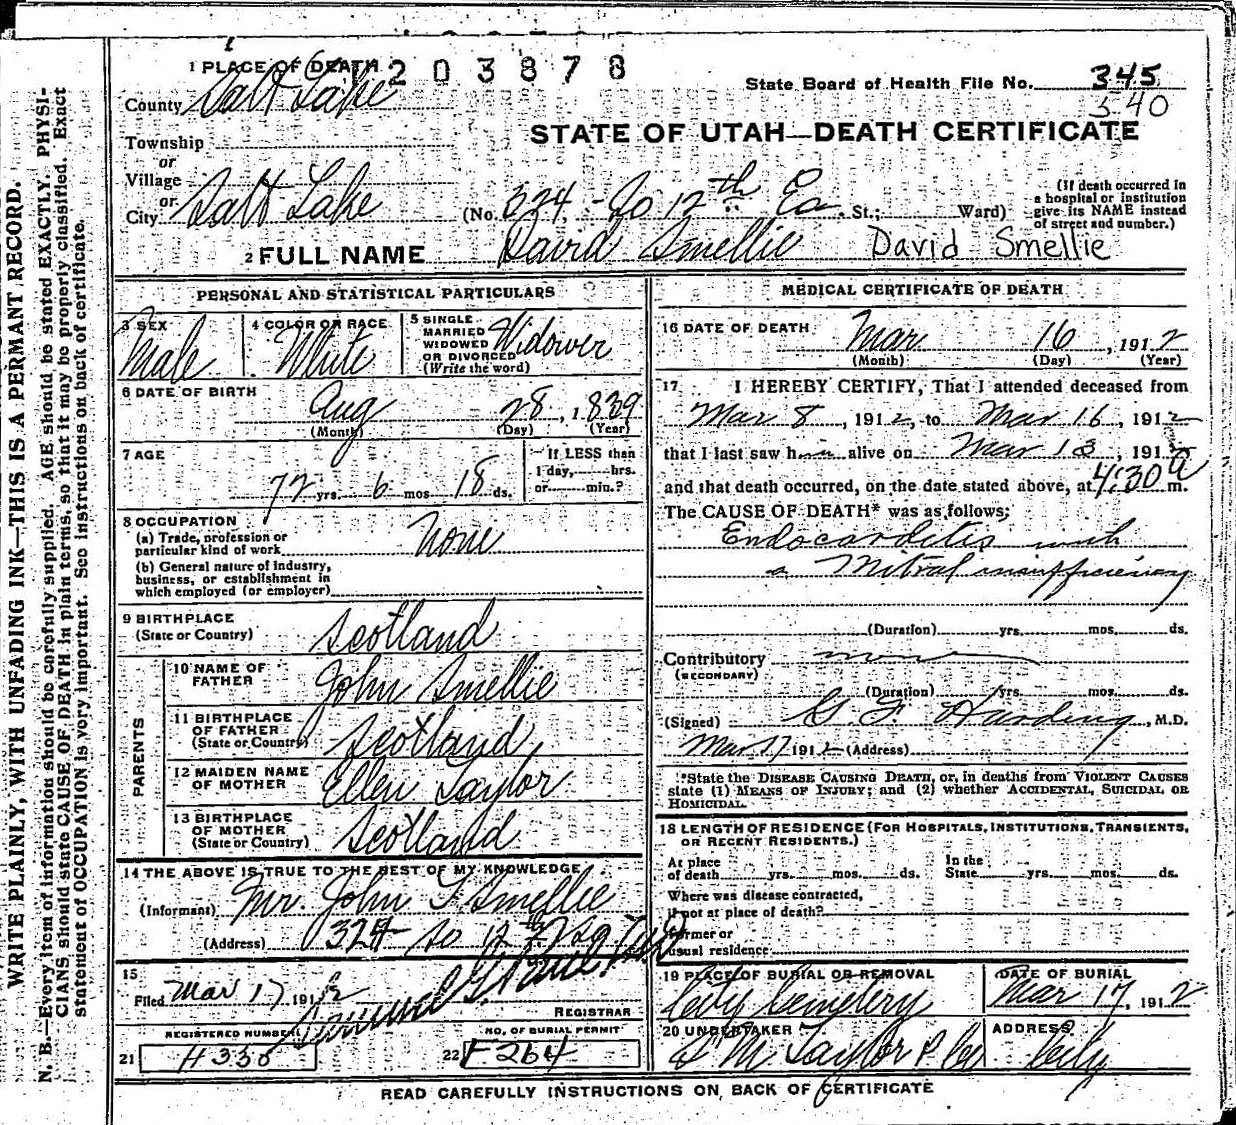 1203878
1 PLACE OF DEATH
State Board of Health File No. 345
340
County Salt Lake
STATE OF UTAH—DEATH CERTIFICATE
Township
or
Village
or
City Salt Lake (No. 324, So 12th Ea. St.; Ward)
(If death occurred in a hospital or institution give its NAME instead of street and number.)
2 FULL NAME David Smellie David Smellie
PERSONAL AND STATISTICAL PARTICULARS
3 SEX Male
4 COLOR OR RACE White
5 SINGLE MARRIED WIDOWED OR DIVORCED (Write the word) Widower
6 DATE OF BIRTH Aug 28, 1839
(Month) (Day) (Year)
7 AGE 72 yrs. 6 mos 18 ds.
If LESS than 1 day, hrs. or min.?
8 OCCUPATION
(a) Trade, profession or particular kind of work None
(b) General nature of industry, business, or establishment in which employed (or employer)
9 BIRTHPLACE
(State or Country) Scotland
PARENTS
10 NAME OF FATHER John Smellie
11 BIRTHPLACE OF FATHER (State or Country) Scotland
12 MAIDEN NAME OF MOTHER Ellen Taylor
13 BIRTHPLACE OF MOTHER (State or Country) Scotland
14 THE ABOVE IS TRUE TO THE BEST OF MY KNOWLEDGE
(Informant) Mr. John T. Smellie
(Address) 324 So 12th
15
Filed Mar 17 1912
REGISTRAR
REGISTERED NUMBER
21 H 335
NO. OF BURIAL PERMIT
22 F 264
MEDICAL CERTIFICATE OF DEATH
16 DATE OF DEATH Mar 16, 1912
(Month) (Day) (Year)
17 I HEREBY CERTIFY, That I attended deceased from
Mar 8, 1912, to Mar 16, 1912
that I last saw him alive on Mar 13, 1912
and that death occurred, on the date stated above, at 4:30 a m.
The CAUSE OF DEATH* was as follows;
Endocarditis with
a Mitral insufficiency
(Duration) yrs. mos. ds.
Contributory none
(SECONDARY)
(Duration) yrs. mos. ds.
(Signed) G. F. Harding, M.D.
Mar 17 1912 (Address)
*State the DISEASE CAUSING DEATH, or, in deaths from VIOLENT CAUSES
state (1) MEANS OF INJURY; and (2) whether ACCIDENTAL, SUICIDAL OR
HOMICIDAL.
18 LENGTH OF RESIDENCE (FOR HOSPITALS, INSTITUTIONS, TRANSIENTS,
OR RECENT RESIDENTS.)
At place of death yrs. mos. ds. In the State yrs. mos. ds.
Where was disease contracted,
if not at place of death?
Former or
usual residence
19 PLACE OF BURIAL OR REMOVAL City Cemetery
DATE OF BURIAL Mar 17, 1912
20 UNDERTAKER S M Taylor & Co
ADDRESS City
READ CAREFULLY INSTRUCTIONS ON BACK OF CERTIFICATE
WRITE PLAINLY, WITH UNFADING INK—THIS IS A PERMANT RECORD.
N. B.—Every item of information should be carefully supplied. AGE should be stated EXACTLY. PHYSI-
CIANS should state CAUSE OF DEATH in plain terms, so that it may be properly classified. Exact
statement of OCCUPATION is very important. See instructions on back of certificate.